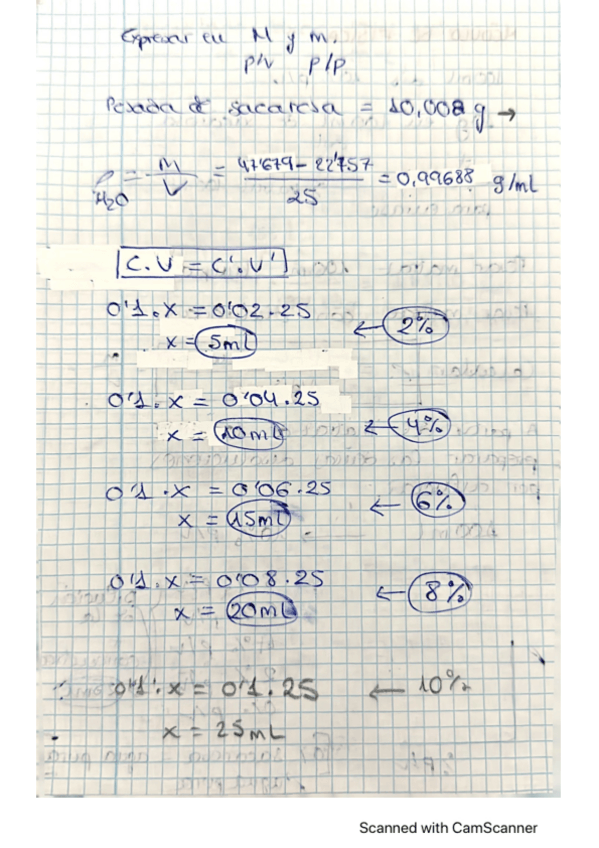 Expresar en M y m.
p/v p/p
Pesada de sacarosa = 10,008 g →
ρH₂O = M/V = 47'679 - 22'757 / 25 = 0,99688 g/mL
C.V = C'.V'
0'1.x = 0'02.25 ← 2%
x = 5mL
0'1.x = 0'04.25 ← 4%
x = 10mL
0'1.x = 0'06.25 ← 6%
x = 15mL
0'1.x = 0'08.25 ← 8%
x = 20mL
0'1.x = 0'1.25 ← 10%
x = 25mL
Scanned with CamScanner